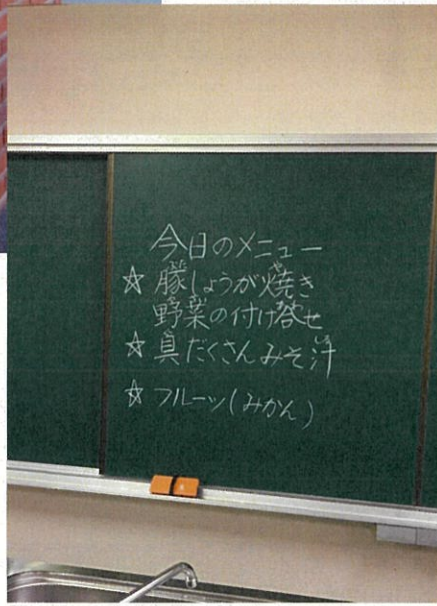 今日のメニュー
☆豚しょうが焼き
野菜の付け合せ
☆具だくさんみそ汁
☆フルーツ(みかん)